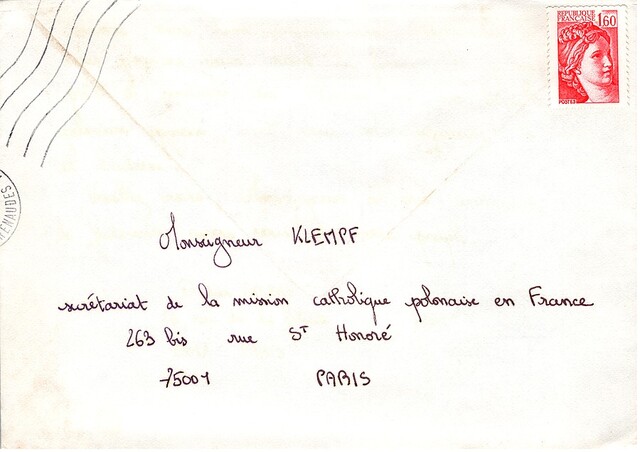 REPUBLIQUE
FRANÇAISE
1,60
POSTES
Monseigneur KLEMPF
surétariat de la mission catholique polonaise en France
263 bis rue ST Honoré
75001 PARIS